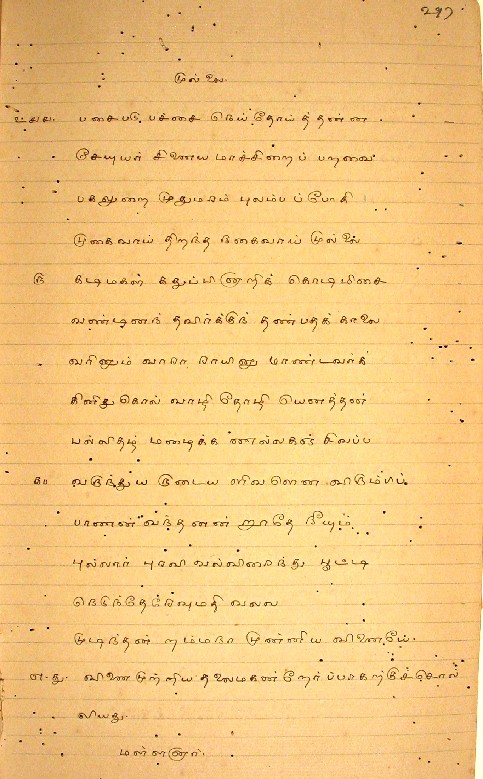 முல்லை.
௨௪௪. பசைபடு பச்சை நெய் தோய்த்தன்ன
சேயுயர் சினைய மாச்சிறைப் பறவை
பகலுறை முதுமரம் புலம்பப்போகி
முகைவாய் திறந்த நகைவாய் முல்லை
௫ கடிமகள் கதுப்பினாறிக் கொடிமிசை
வண்டினந் தவிர்க்குந் தண்பதக் காலை
வரினும் வாரா ராயினு மாண்டவர்க்
கினிதுகொல் வாழி தோழி யெனத்தன்
பல்லிதழ் மழைக்க ணல்லகஞ் சிவப்ப
௧௰ வருந்துய ருடைய ளிவளென விரும்பிப்
பாணன் வந்தனன் றூதே நீயும்
புல்லார் புரவி வல்விரைந்து பூட்டி
நெடுந்தேரூர்மதி வலவ
முடிந்தன் றம்மநா முன்னிய வினையே.
எ-து. வினைமுற்றிய தலைமகன் றேர்ப்பாகற்குச்சொல்
லியது.
மள்ளனார்.